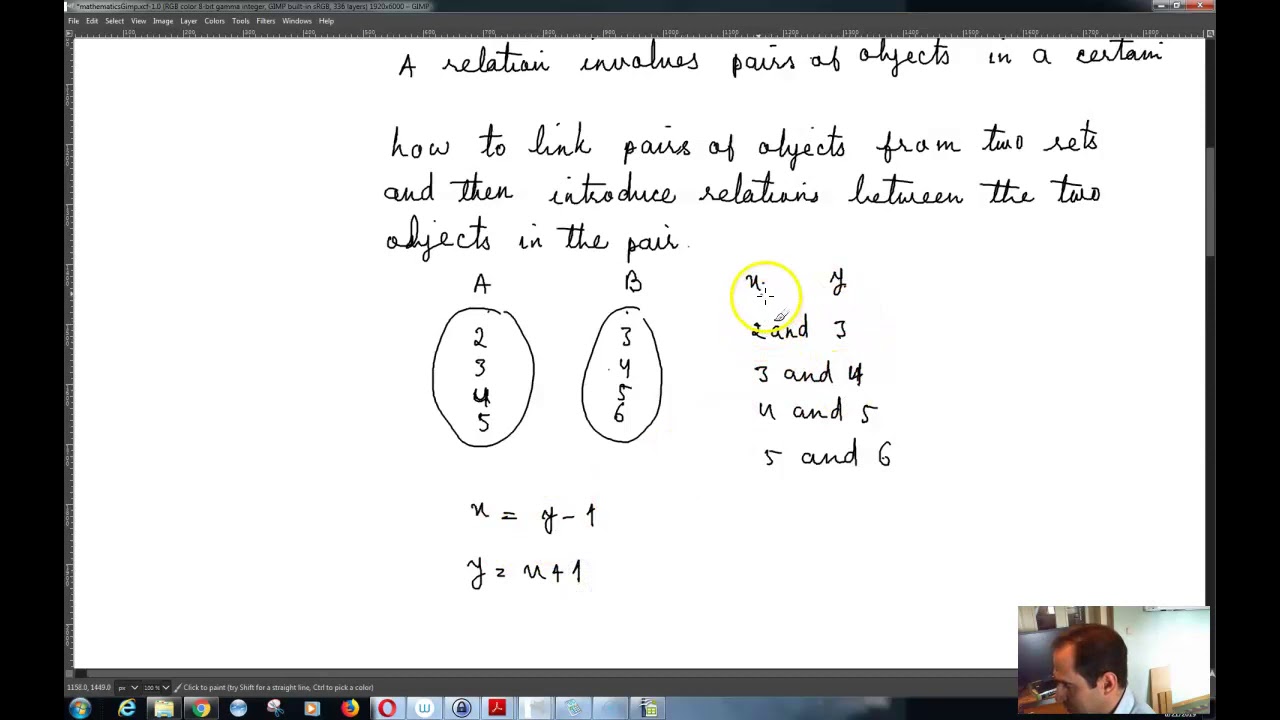 *mathematicsGimp.xcf-1.0 (RGB color 8-bit gamma integer, GIMP built-in sRGB, 336 layers) 1920x6000 – GIMP
File Edit Select View Image Layer Colors Tools Filters Windows Help
A relation involves pairs of objects in a certain
how to link pairs of objects from two sets
and then introduce relations between the two
objects in the pair.
A B x y
2 3 2 and 3
3 4 3 and 4
4 5 4 and 5
5 6 5 and 6
x = y - 1
y = x + 1
1158.0, 1449.0 px 100 % Click to paint (try Shift for a straight line, Ctrl to pick a color)